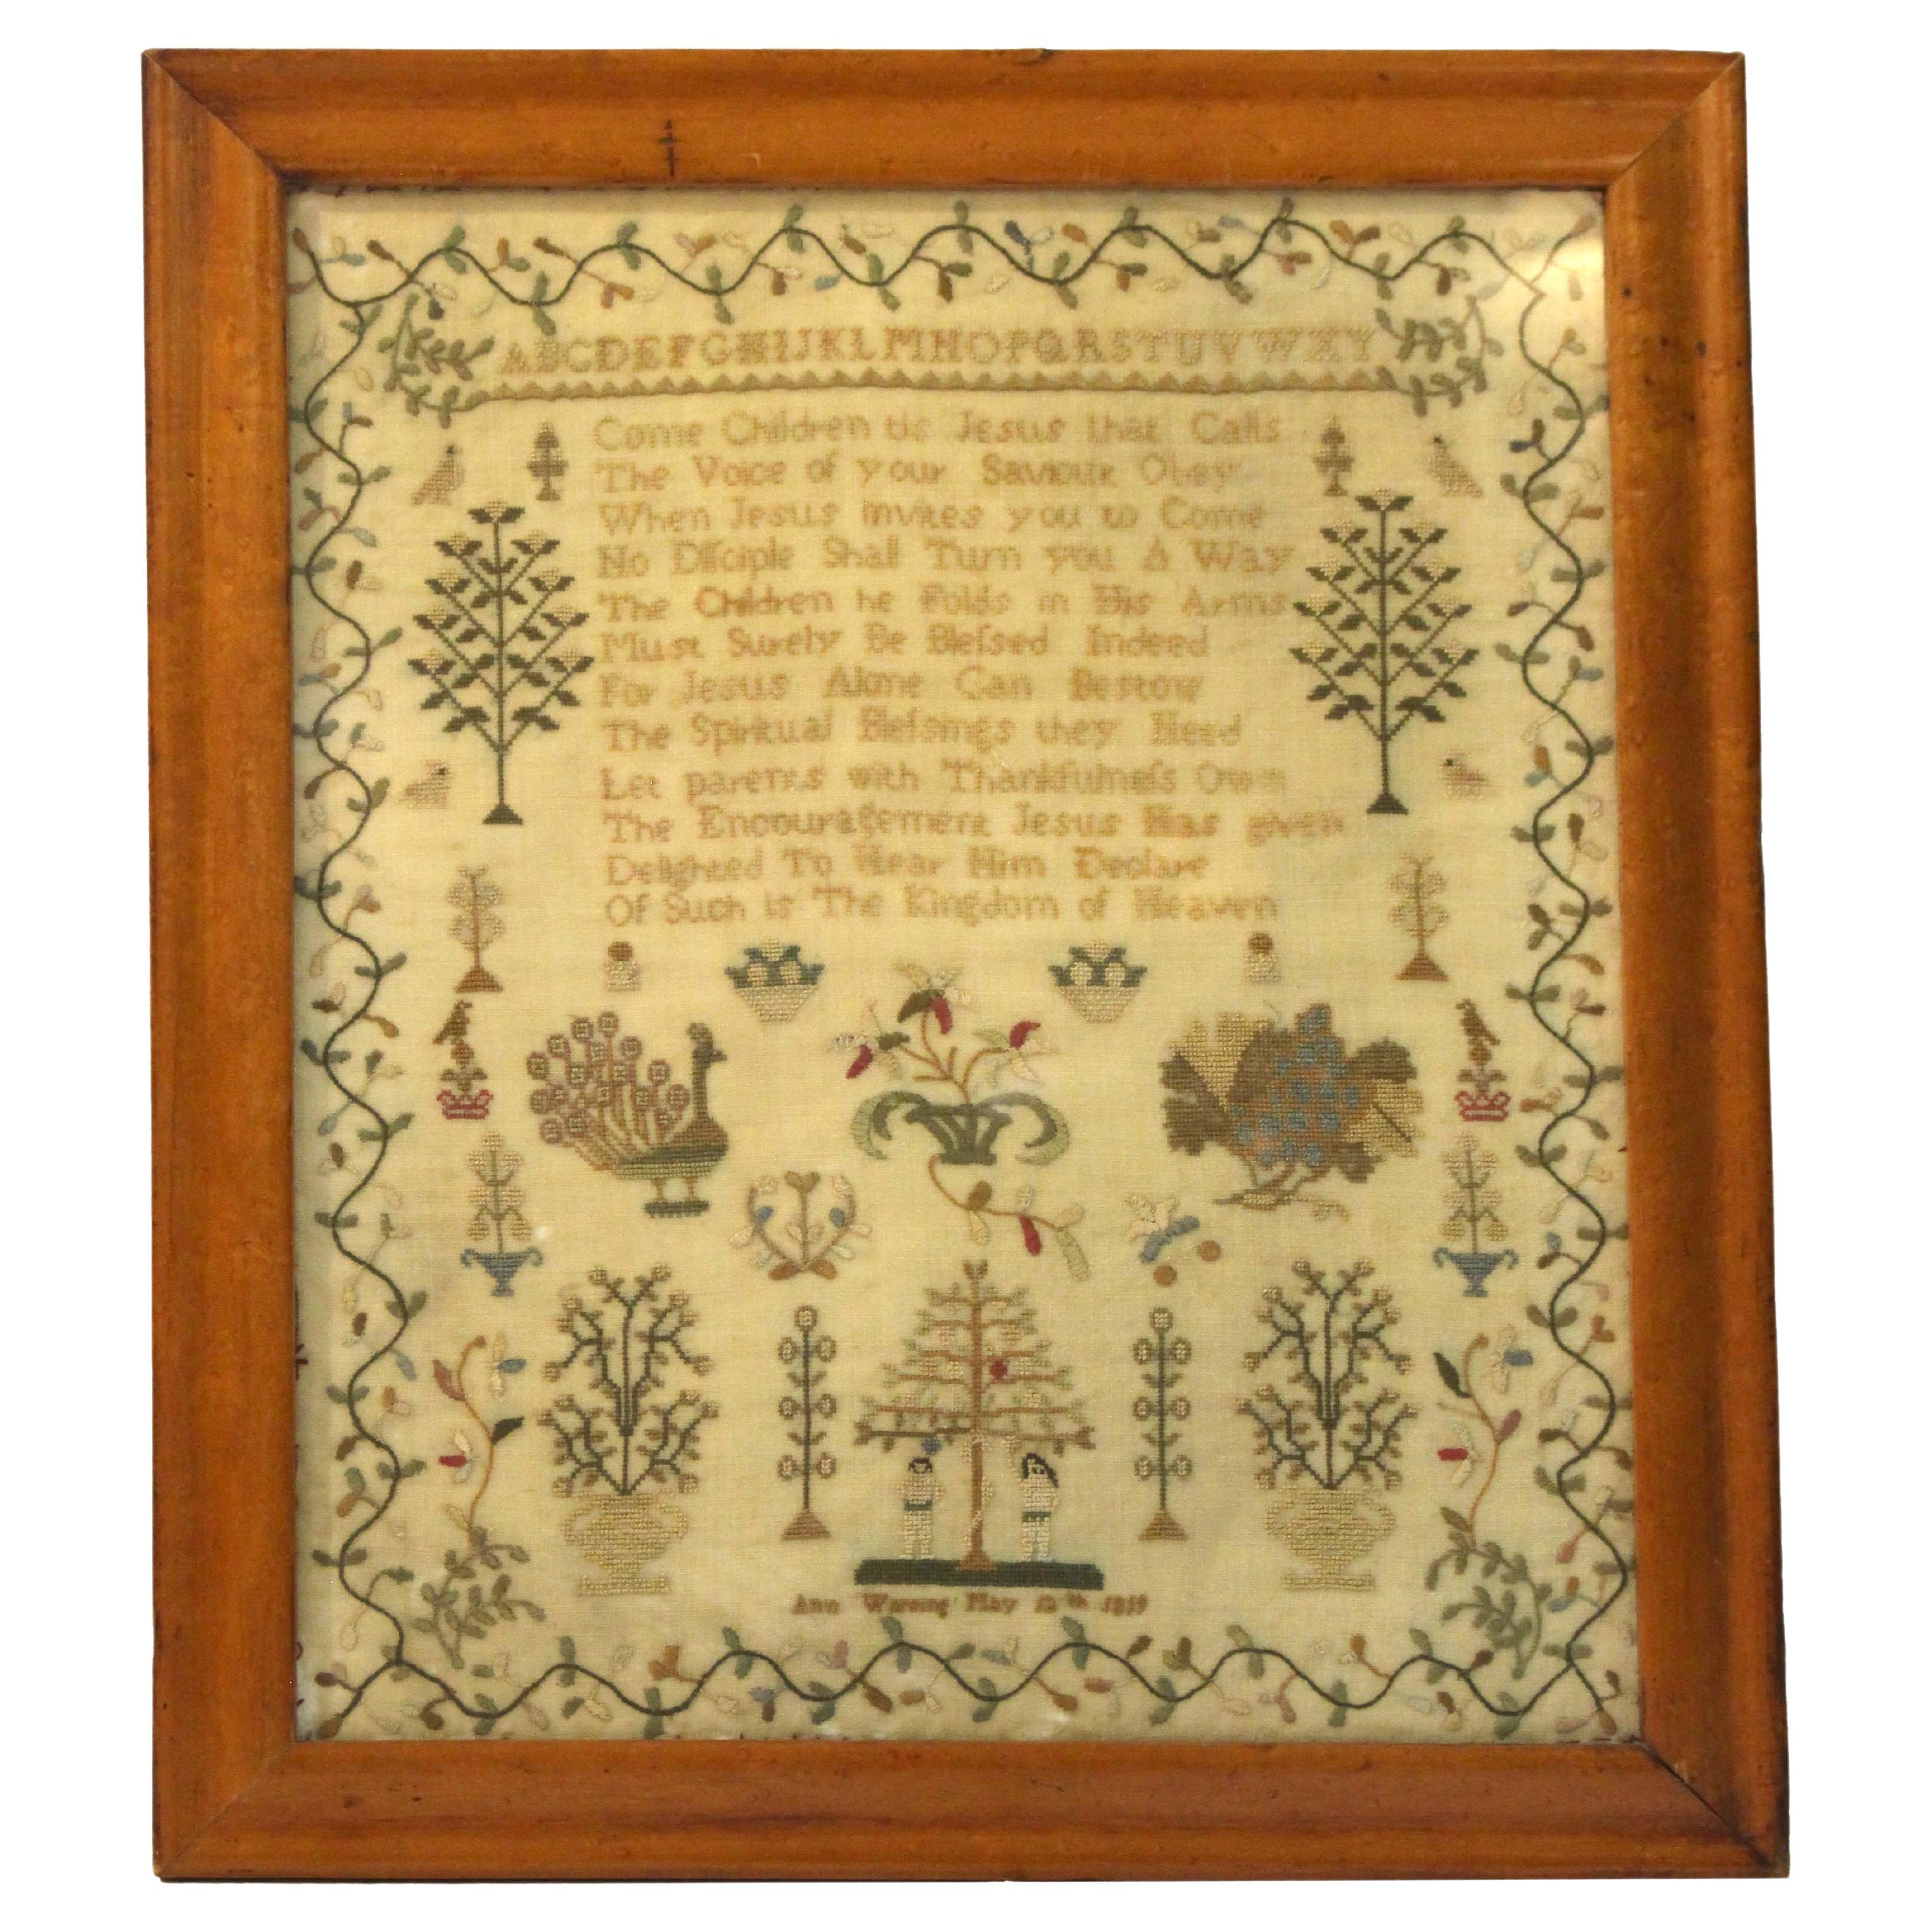 ABCDEFGHIJKLMNOPQRSTUVWXY
Come Children tis Jesus that Calls
The Voice of your Saviour Obey
When Jesus invites you to Come
No Disciple Shall Turn you A Way
The Children he Folds in His Arms
Must Surely Be Blefsed Indeed
For Jesus Alone Can Bestow
The Spiritual Blefsings they Need
Let parents with Thankfulnefs Own
The Encouragement Jesus Has given
Delighted To Hear Him Declare
Of Such is The Kingdom of Heaven
Ann May th